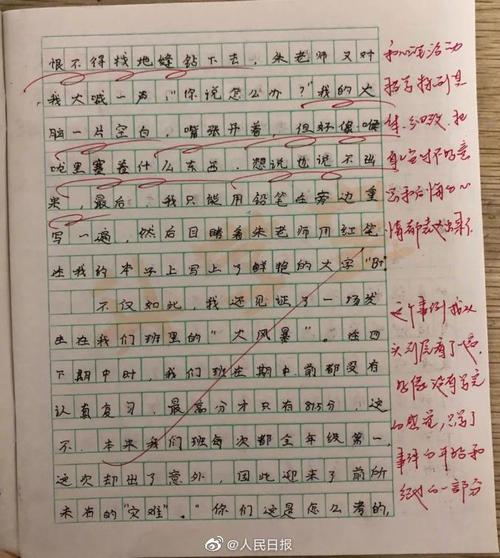 恨不得找地缝钻下去，朱老师又对
我大喊一声，“你说怎么办？”我的大
脑一片空白，嘴张开着，但好像喉
咙里塞着什么东西，想说也说不出
来，最后，我只能用铅笔在旁边重
写一遍，然后目睹着朱老师用红笔
在我的本子上写上了鲜艳的大字“B”。
不仅如此，我还见证了一场发
生在我们班里的“大风暴”。在四
下期中时，我们班在期中前都没有
认真复习，最高分才只有87.5分，这
不，本来我们班每次都全年级第一，
这次却出了意外，因此迎来了前所
未有的“灾难”。“你们这是怎么考的，
和心理活动
描写特别具
体、细致，把
真心实意
写和后悔的心
情都表达出来了
这个事例我从
头到尾看了一遍，
好像没有写完
的感觉，只写了
事件的开始和
经过的一部分
@人民日报